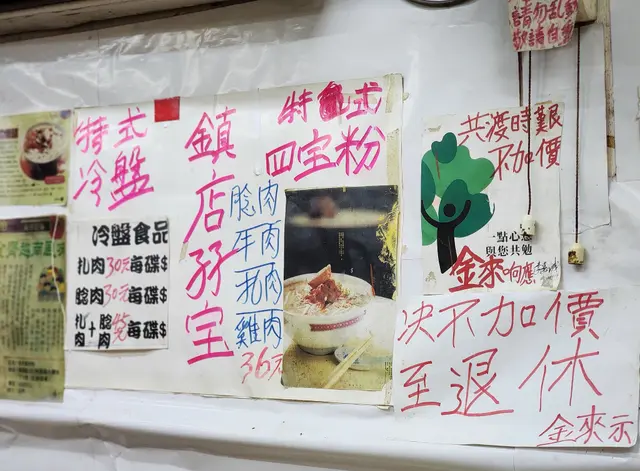 請勿亂
敬請自
特式
冷盤
冷盤食品
扎肉30元每碟$
脸肉30元每碟$
扎肉+脸肉 每碟$
鎮店孖宝
特式
四宝粉
脸肉
牛肉
扎肉
雞肉
36元
共渡時艱
不加價
點心
與您共勉
金來响應
决不加價
至退休
金來示